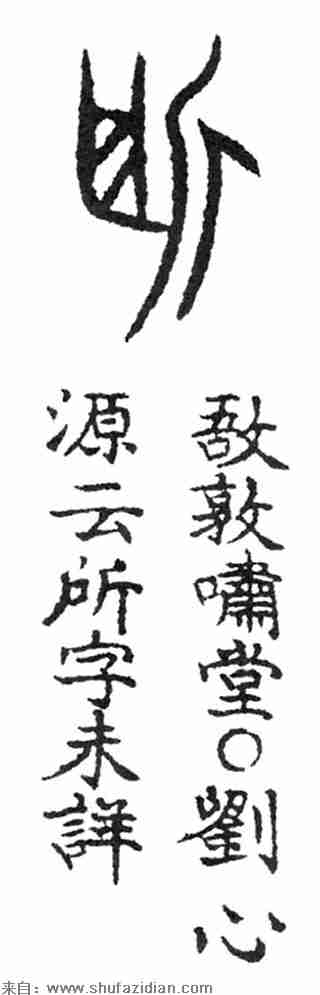 敔敦嘯堂○劉心
源云所字未詳
来自：www.shufazidian.com